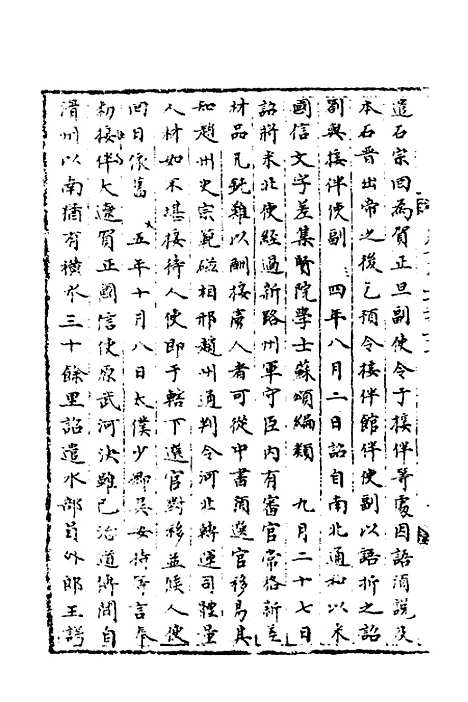 遣石宗回為賀正旦副使令于接伴等處因語須說及
本石晉出帝之後乞預令接伴館伴使副以語折之詔
劄與接伴使副　四年八月二日詔自南北通和以來
國信文字差集賢院學士蘇頌編類　九月二十七日
詔將來北使經過新路州軍守臣內有審官常格新差
材品凡鈍難以酬接虜人者可從中書預選官移易其
知趙州史宗範磁相邢趙州通判令河北轉運司體量
人材如不堪接待人使即于轄下選官對移並候人使
回日依舊　五年十月八日太僕少卿吳安持等言奉
敕接伴大遼賀正國信使原武河決雖已治道濟開自
滑州以南猶有橫水三十餘里詔遣水部員外郎王諤